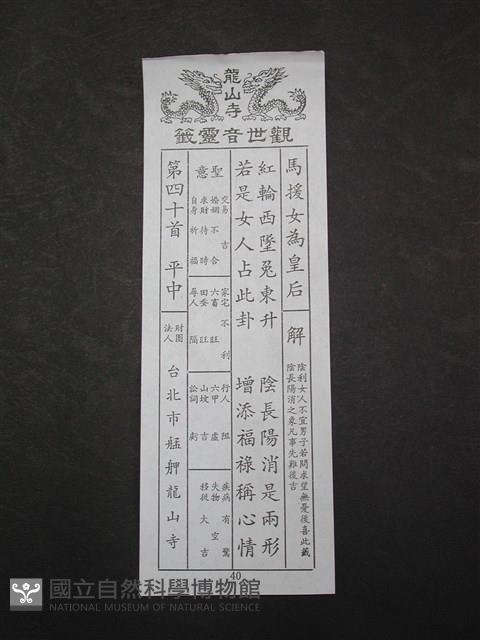 龍山寺
觀世音靈籤
馬援女為皇后
解
陰利女人不宜男子若問求望無憂後喜此籤
陰長陽消之象凡事先難後吉
紅輪西墜兔東升
陰長陽消是兩形
若是女人占此卦
增添福祿稱心情
聖意
交易 不吉
婚姻 不合
求財 待時
自身 祈福
家宅 不利
六畜 旺
田蚕 旺
尋人 隔
行人 阻
六甲 虛
山墳 吉
訟詞
疾病 有驚
失物 空
移徙 大吉
第四十首 平中
財團法人
台北市艋舺龍山寺
40
國立自然科學博物館
NATIONAL MUSEUM OF NATURAL SCIENCE